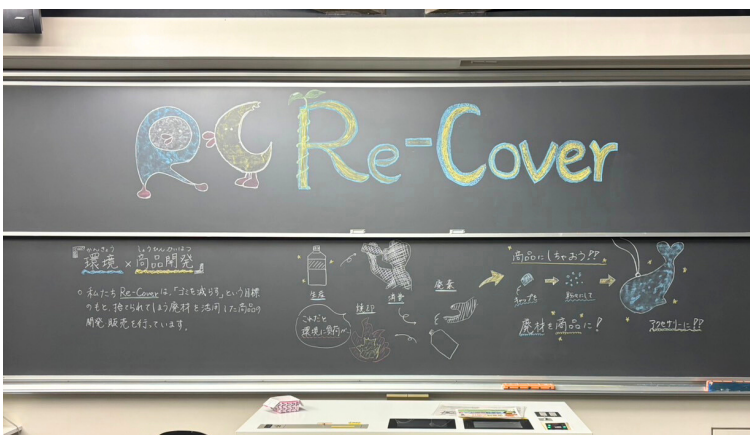 RC Re-Cover
かんきょう しょうひんかいはつ
環境 × 商品開発
○ 私たち Re-Coverは、「ゴミを減らす」という目標
のもと、捨てられてしまう廃材を活用した商品の
開発 販売を行っています。
生産
消費
廃棄
焼却
これだと
環境に負荷が…
商品にしちゃおう??
キャップを
粉々にして
アクセサリーに??
廃材を商品に!